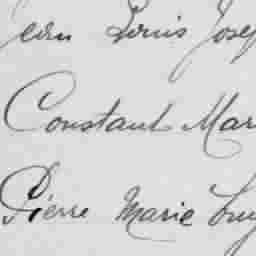 Jean Louis Josep
Constant Mar
Pierre Marie